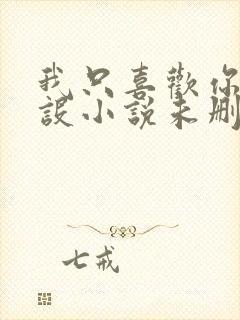 我只喜歡你
設小說未刪
七戒